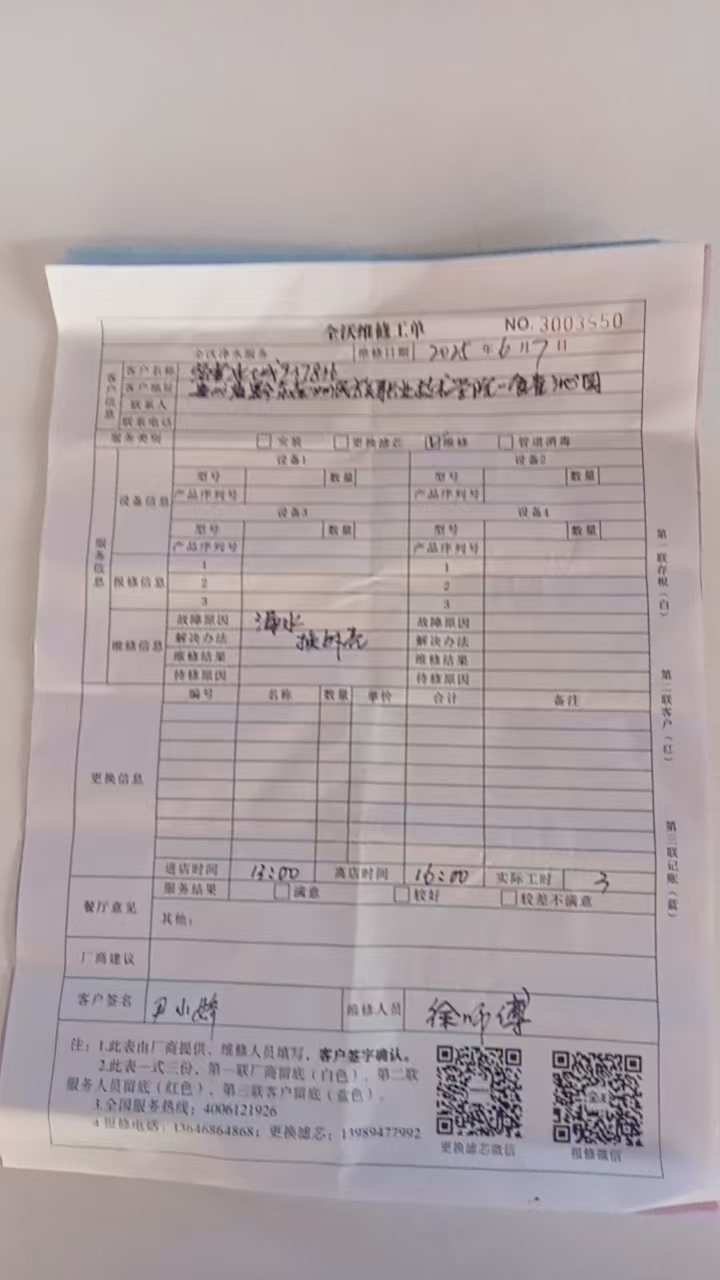 全沃维修工单 NO. 3003550
全沃净水服务 维修日期 2025 年 6 月 7 日
客户信息
客户名称
客户地址 职业技术学院一食堂
联系人
联系电话
服务类别 安装 更换滤芯 维修 管道消毒
服务信息
设备信息
设备1 设备2
型号 数量 型号 数量
产品序列号 产品序列号
设备3 设备4
型号 数量 型号 数量
产品序列号 产品序列号
报修信息
1 1
2 2
3 3
维修信息
故障原因 漏水 故障原因
解决办法 解决办法
维修结果 维修结果
待修原因 待修原因
更换信息
编号 名称 数量 单价 合计 备注
进店时间 13:00 离店时间 16:00 实际工时 3
餐厅意见
服务结果 满意 较好 较差不满意
其他:
厂商建议
客户签名 尹小婷 维修人员 徐师傅
注:1.此表由厂商提供、维修人员填写,客户签字确认。
2.此表一式三份,第一联厂商留底(白色)、第二联
服务人员留底(红色)、第三联客户留底(蓝色)。
3.全国服务热线:4006121926
4.报修电话:13646864868;更换滤芯:13989477992
更换滤芯微信 报修微信
第一联存根(白)
第二联客户(红)
第三联记账(蓝)